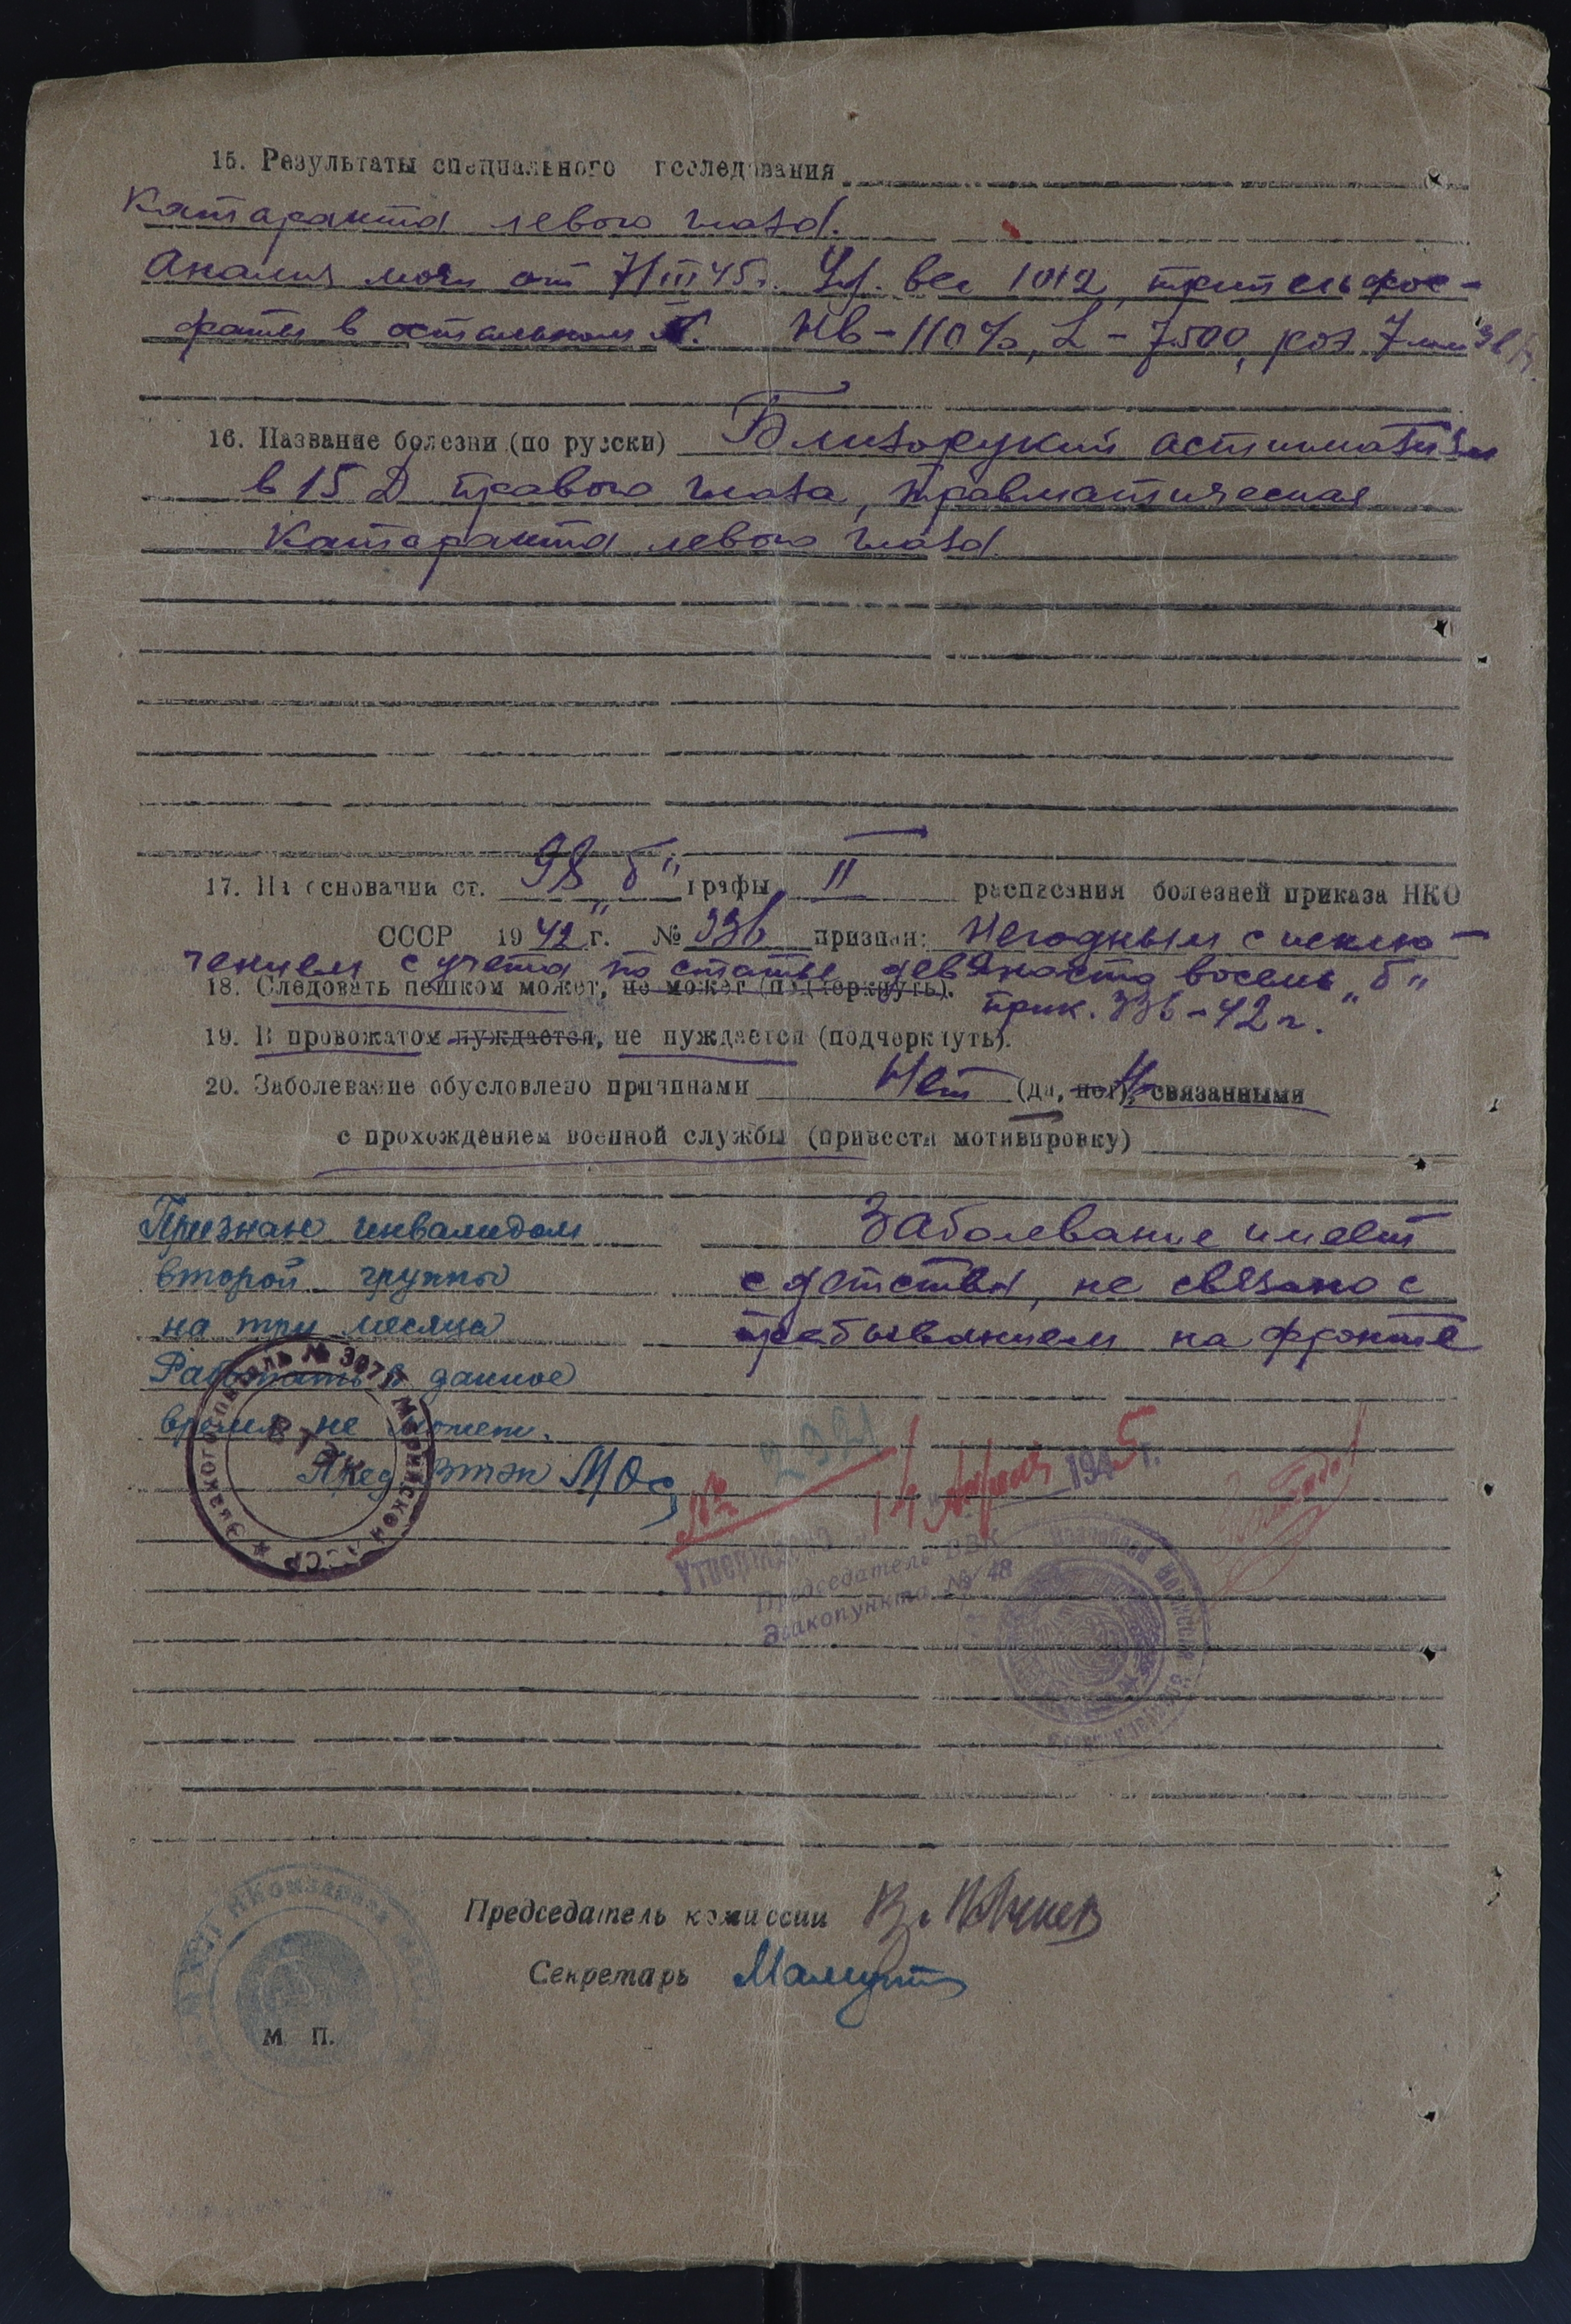 15. Результаты специального исследования
Катаракта левого глаза.
Анализ мочи от 7/III 45г. Уд. вес 1012, трипельфос-
фаты в остальном N. Нв – 110%, L – 7.500, роэ 7 мм
16. Название болезни (по русски) Близорукий астигматизм
в 15 D правого глаза, травматическая
катаракта левого глаза.
17. На основании ст. 98 „б" графы II расписания болезней приказа НКО
СССР 1942 г. № 336 признан: Негодным с исклю-
чением с учета по статье девяносто восемь „б"
18. Следовать пешком может, не может (подчеркнуть). прик. 336-42 г.
19. В провожатом нуждается, не нуждается (подчеркнуть).
20. Заболевание обусловлено причинами Нет (да, нет), связанными
с прохождением военной службы (привести мотивировку)
Признан инвалидом
второй группы
на три месяца
Работать в данное
время не может.
Пред ВТЭК
Заболевание имеет
с детства, не связано с
пребыванием на фронте
№ 2921
14 Апреля 1945 г.
Утверждаю
Председатель ВВК
Эвакопункта № 48
Эвакогоспиталь № 307 Марийской АССР
Председатель комиссии
Секретарь
М. П.